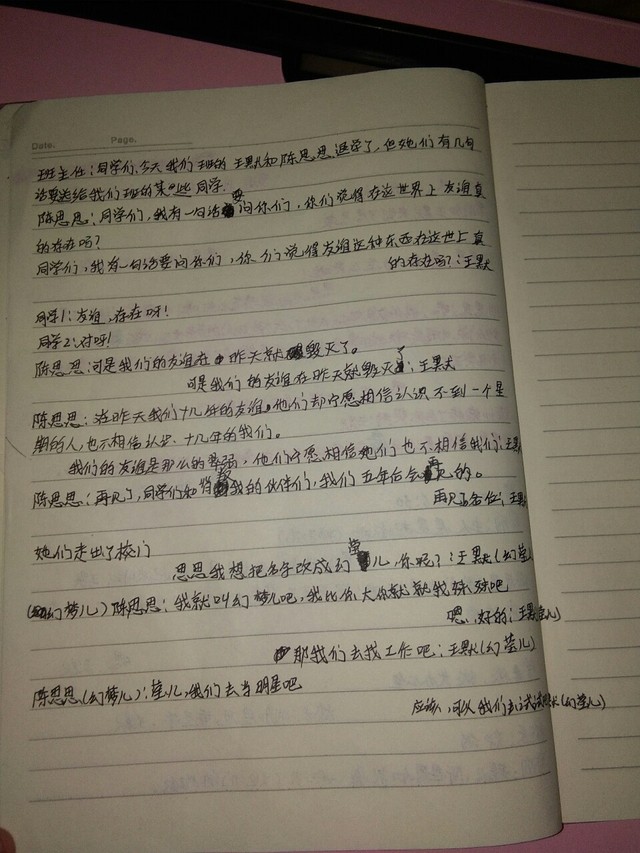 Date. Page.
班主任：同学们，今天我们班的王默和陈思思退学了，但她们有几句
话要送给我们班的某些同学.
陈思思：同学们，我有一句话要问你们，你们觉得在这世界上友谊真
的存在吗？
同学们，我有一句话要问你们，你们觉得友谊这种东西在这世上真
的存在吗？：王默
同学1：友谊，存在呀！
同学2：对呀！
陈思思：可是我们的友谊在昨天就毁灭了。
可是我们的友谊在昨天就毁灭了：王默
陈思思：在昨天我们十几年的友谊。他们却宁愿相信认识不到一个星
期的人，也不相信认识十几年的我们。
我们的友谊是那么的脆弱，他们宁愿相信她们也不相信我们：王默
陈思思：再见了，同学们和背叛我的伙伴们，我们五年后会再见的。
再见了各位：王默
她们走出了校门
思思我想把名字改成幻莹儿，你呢？：王默(幻莹
(幻梦儿)陈思思：我就叫幻梦儿吧，我比你大你就叫我姝姝吧
嗯，好的：王默莹儿)
那我们去找工作吧：王默(幻莹儿)
陈思思(幻梦儿)：莹儿，我们去当明星吧
应该，可以我们去试试默(幻莹儿)